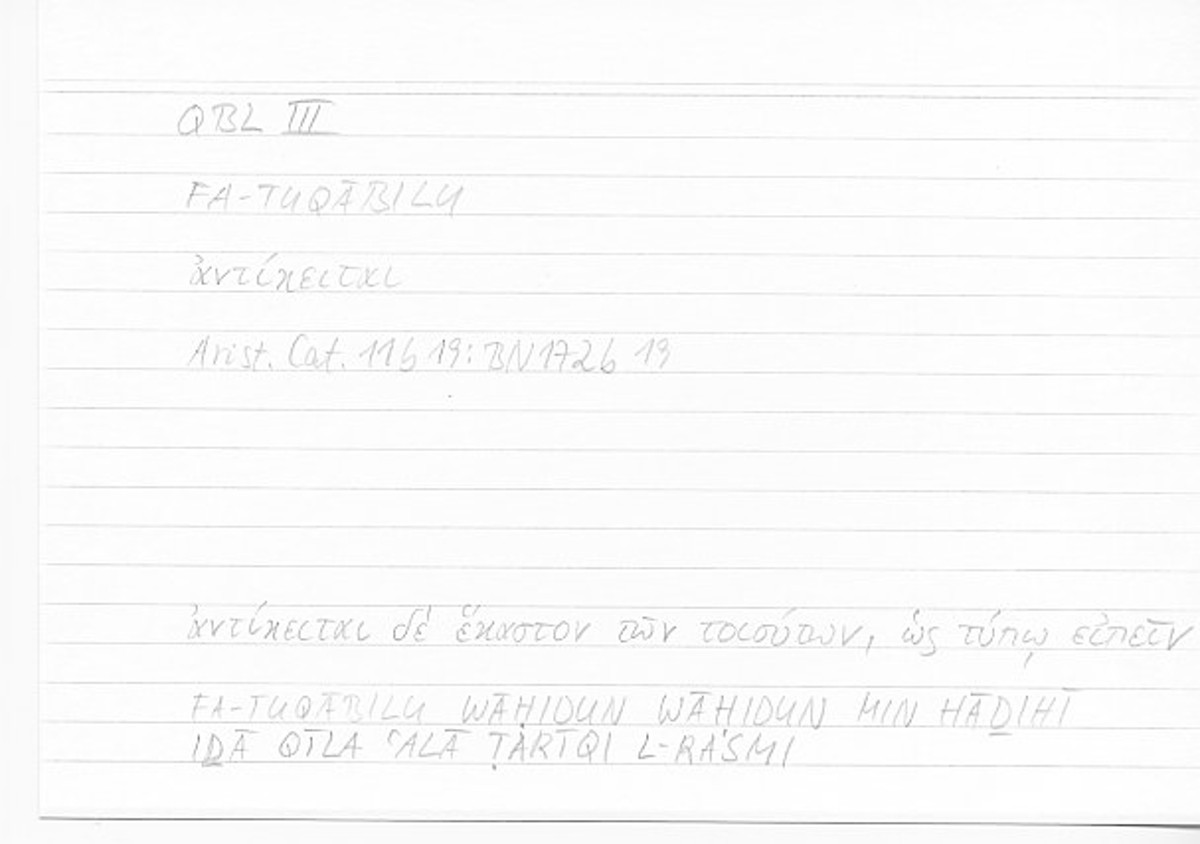 QBL III
FA-TUQĀBILU
ἀντίκειται
Arist. Cat. 11b 19: BN 172b 19
ἀντίκειται δὲ ἕκαστον τῶν τοιούτων, ὡς τύπῳ εἰπεῖν
FA-TUQĀBILU WĀḤIDUN WĀḤIDUN MIN HĀḎIHĪ
IḎĀ QĪLA ʿALĀ ṬARĪQI L-RASMI